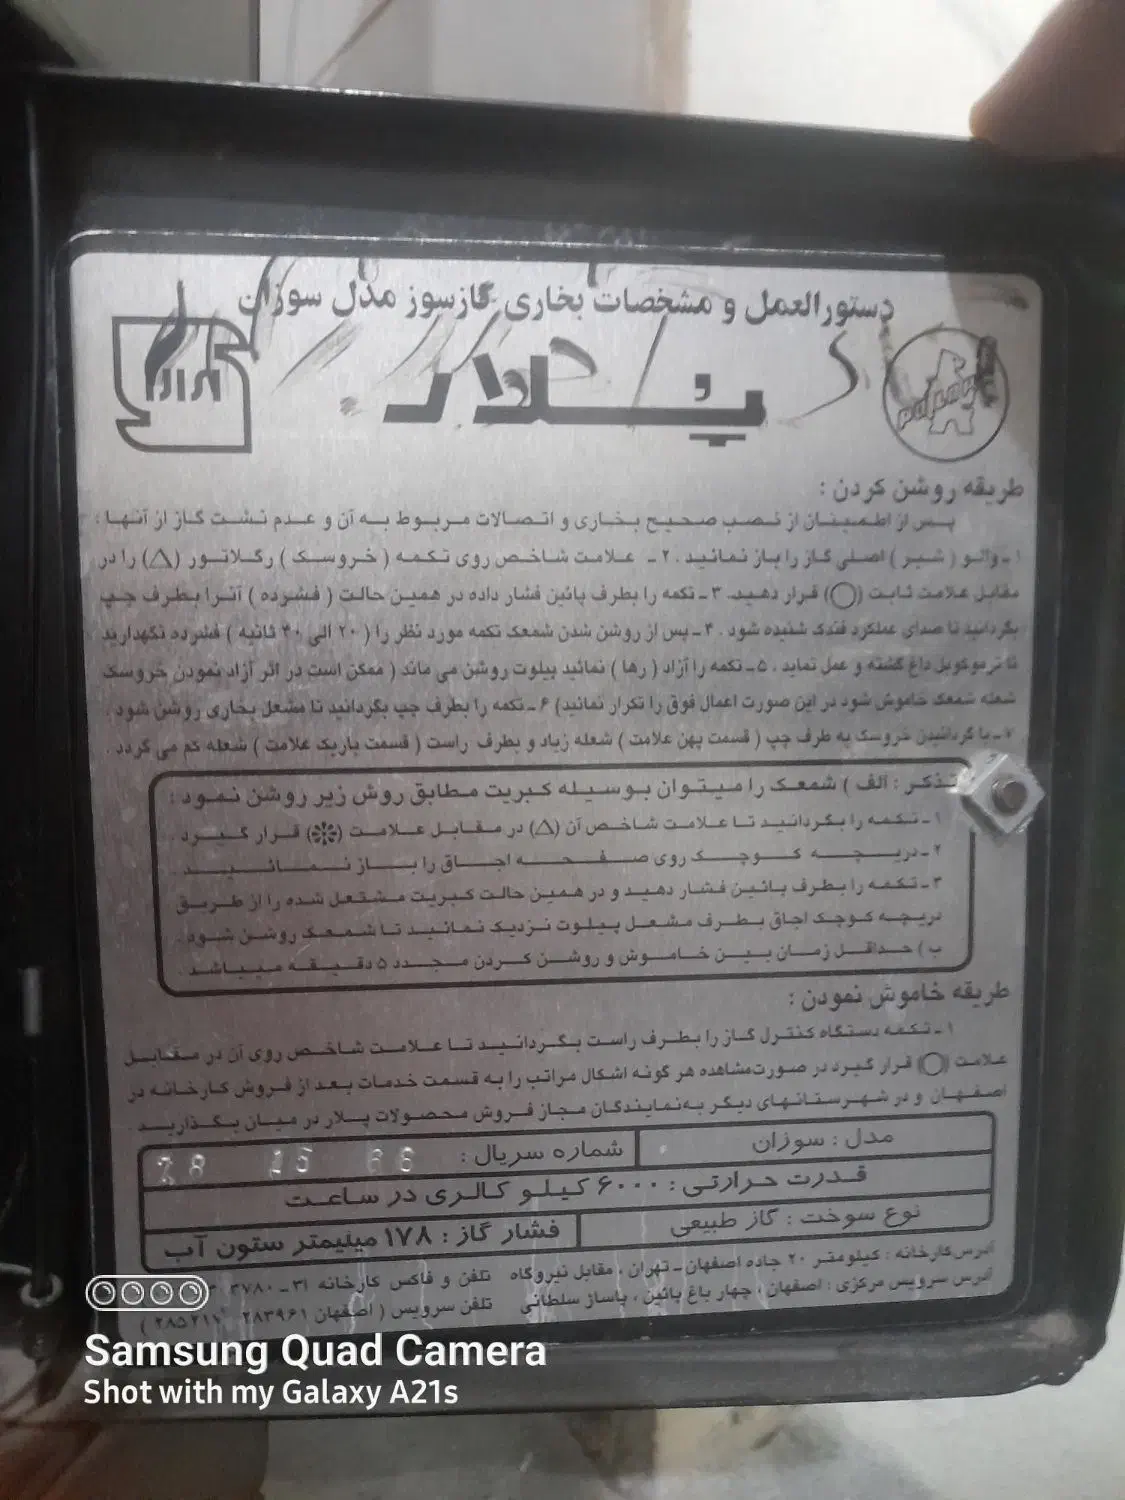 دستورالعمل و مشخصات بخاری گازسوز مدل سوزان
پلار
polar
طریقه روشن کردن :
پس از اطمینان از نصب صحیح بخاری و اتصالات مربوط به آن و عدم نشت گاز از آنها :
۱ - والو ( شیر ) اصلی گاز را باز نمائید . ۲ - علامت شاخص روی تکمه ( خروسک ) رگلاتور (△) را در
مقابل علامت ثابت (○) قرار دهید. ۳ - تکمه را بطرف پائین فشار داده در همین حالت ( فشرده ) آنرا بطرف چپ
بگردانید تا صدای عملکرد فندک شنیده شود . ۴ - پس از روشن شدن شمعک تکمه مورد نظر را ( ۲۰ الی ۳۰ ثانیه ) فشرده نگهدارید
تا ترموکوپل داغ گشته و عمل نماید . ۵ - تکمه را آزاد ( رها ) نمائید پیلوت روشن می ماند ( ممکن است در اثر آزاد نمودن خروسک
شعله شمعک خاموش شود در این صورت اعمال فوق را تکرار نمائید) ۶ - تکمه را بطرف چپ بگردانید تا مشعل بخاری روشن شود .
۷ - با گردانیدن خروسک به طرف چپ ( قسمت پهن علامت ) شعله زیاد و بطرف راست ( قسمت باریک علامت ) شعله کم می گردد .
تذکر : الف ) شمعک را میتوان بوسیله کبریت مطابق روش زیر روشن نمود :
۱ - تکمه را بگردانید تا علامت شاخص آن (△) در مقابل علامت (❊) قرار گیرد .
۲ - دریچه کوچک روی صفحه اجاق را باز نمائید .
۳ - تکمه را بطرف پائین فشار دهید و در همین حالت کبریت مشتعل شده را از طریق
دریچه کوچک اجاق بطرف مشعل پیلوت نزدیک نمائید تا شمعک روشن شود .
ب ) حداقل زمان بین خاموش و روشن کردن مجدد ۵ دقیقه میباشد .
طریقه خاموش نمودن :
۱ - تکمه دستگاه کنترل گاز را بطرف راست بگردانید تا علامت شاخص روی آن در مقابل
علامت (○) قرار گیرد در صورت مشاهده هر گونه اشکال مراتب را به قسمت خدمات بعد از فروش کارخانه در
اصفهان و در شهرستانهای دیگر به نمایندگان مجاز فروش محصولات پلار در میان بگذارید .
مدل : سوزان
شماره سریال : 28 15 66
قدرت حرارتی : ۶۰۰۰ کیلو کالری در ساعت
نوع سوخت : گاز طبیعی
فشار گاز : ۱۷۸ میلیمتر ستون آب
آدرس کارخانه : کیلومتر ۲۰ جاده اصفهان - تهران ، مقابل نیروگاه تلفن و فاکس کارخانه ۳۱ - ۳۷۸۰
آدرس سرویس مرکزی : اصفهان ، چهار باغ پائین ، پاساژ سلطانی تلفن سرویس ( اصفهان ۲۸۳۹۶۱ - ۲۸۵۲۱۷ )
Samsung Quad Camera
Shot with my Galaxy A21s